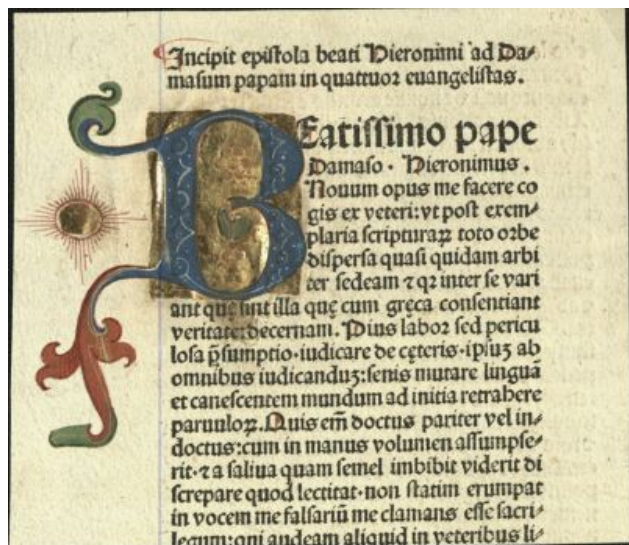 Incipit epistola beati Hieronimi ad Da⸗
masum papam in quattuor euangelistas.
BEatissimo pape
Damaso · Hieronimus.
Nouum opus me facere co
gis ex veteri: vt post exem⸗
plaria scripturaꝝ toto orbe
dispersa quasi quidam arbi
ter sedeam ⁊ qꝛ inter se vari
ant quę sint illa quę cum gręca consentiant
veritate: decernam. Pius labor sed pericu
losa p̄sumptio · iudicare de cęteris · ipsuꝫ ab
omnibus iudicanduꝫ: senis mutare linguā
et canescentem mundum ad initia retrahere
paruuloꝝ. Quis em̄ doctus pariter vel in⸗
doctus: cum in manus volumen assumpse⸗
rit · ⁊ a saliua quam semel imbibit viderit di
screpare quod lectitat · non statim erumpat
in vocem me falsariū me clamans esse sacri⸗
legum: qui audeam aliquid in veteribus li⸗